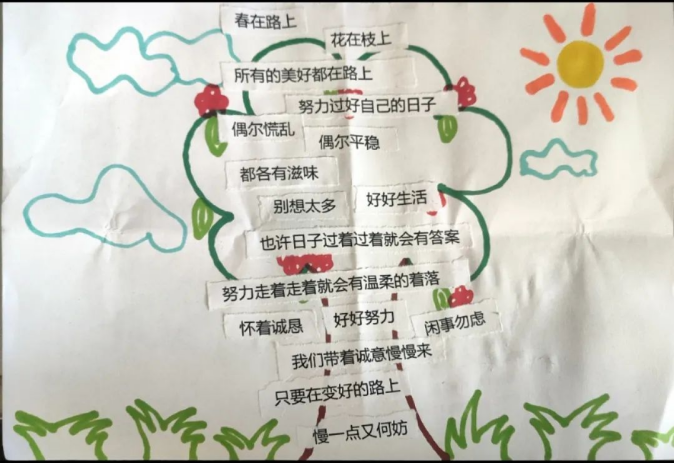 春在路上
花在枝上
所有的美好都在路上
努力过好自己的日子
偶尔慌乱
偶尔平稳
都各有滋味
别想太多
好好生活
也许日子过着过着就会有答案
努力走着走着就会有温柔的着落
怀着诚恳
好好努力
闲事勿虑
我们带着诚意慢慢来
只要在变好的路上
慢一点又何妨